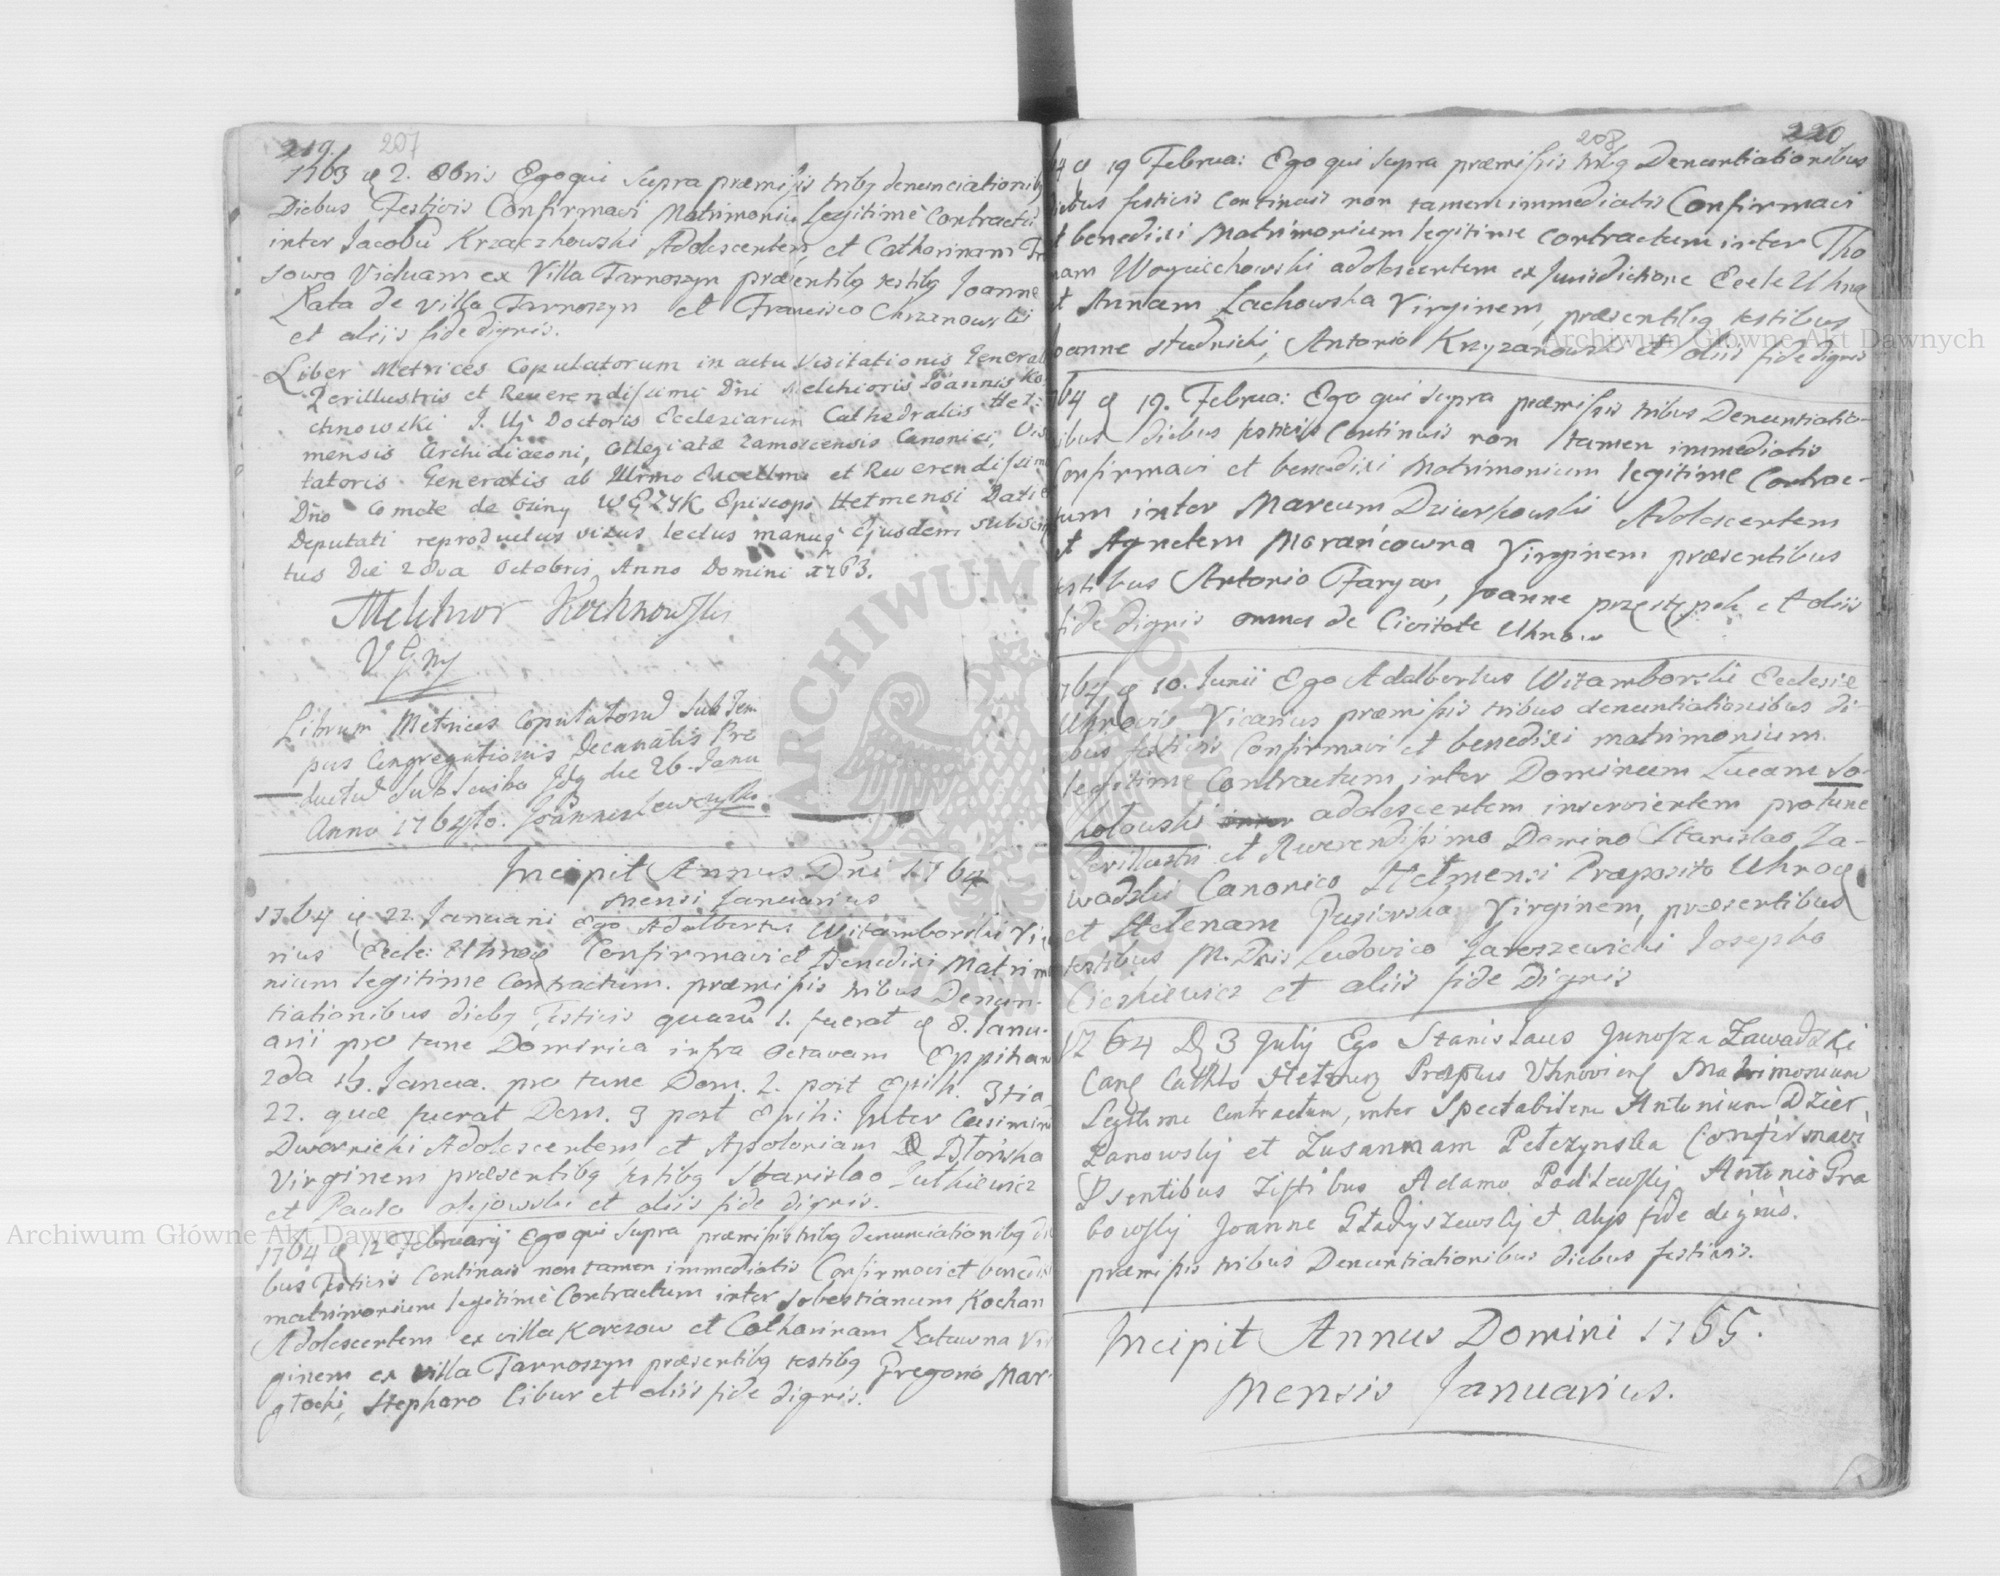 219. 207
1763 d 2. 8bris Ego qui supra præmissis tribq denunciationibq
Diebus Festivis Confirmavi Matrimoniu Legitimè Contractu
inter Jacobu Krzaczkowski Adolescentem, et Catharinam
sowa Viduam ex Villa Tarnoszyn præsentibq testibq Joanne
Łata de Villa Tarnoszyn et Francisco Chrzanowski
et aliis fide dignis.
Liber Metrices Copulatorum in actu Visitationis General
Perillustris et Reverendissimi Dni Melchioris Joannis Ko
chnowski J. Uj Doctoris Ecclesiarum Cathedralis Het:
mensis Archidiaconi, Collegiatæ Zamoscensis Canonici, Vis
tatoris Generalis ab Illrmo Excellmo et Reverendissim
Dño Comite de Osiny WĘZYK Episcopo Hetmensi
Deputati reproductus visus lectus manuq Ejusdem subscrip
tus Die 2dva Octobris Anno Domini 1763.
Melchior Kochnowski
V G mp
Librum Metrices Copulatoru sub Tem
pus Congregationis Decanalis Pro
ductu subscribo Idq die 26. Janu
Anno 1764to. Joannes
Incipit Annus Dni 1764
Mensi Januarius
1764 d 22. Januarii Ego Adalbertus Witamborski Vica
rius Eccle: Uhnov Confirmavi et Benedixi Matrimo
nium legitime Contractum. præmissis tribus Denun-
tiationibus diebq Festivis quaru 1. fuerat d 8. Janu-
arii pro tunc Dominica infra Octavam Eppiphan
2da 15. Janua. pro tunc Dom. 2. post Epiph. 3tia
22. quæ fuerat Dom. 3 post Epih: Inter Casimiru
Dwornicki Adolescentem et Apoloniam Błońska
Virginem præsentibq testibq Stanislao Jutkiewicz
et Paulo olijowski et aliis fide dignis.
1764 d 12 February Ego qui supra præmissis tribq denunciationibq di
bus Festivis Continuis non tamen immediatis Confirmavi et benedixi
matrimonium legitimè Contractum inter Sebestianum Kochan
Adolescentem ex villa Korczow et Catharinam Łatawna Vir
ginem ex villa Tarnoszyn præsentibq testibq Gregorio Mar-
głocki, Stephano Cibur et aliis fide dignis.
208 220
64 d 19 Februa: Ego qui supra præmissis tribq Denuntiationibus
iebus festivis Continuis non tamen immediatis Confirmavi
t benedixi Matrimonium legitime contractum inter Tho
mam Woyciechowski adolescentem ex Jurisdictione Eccle Uhno
et Annam Lachowska Virginem, præsentibq testibus
Joanne studnicki, Antonio Krzyzanowski et aliis fide dignis
1764 d 19. Februa: Ego qui supra præmissis tribus Denuntiatio-
ibus diebus festivis Continuis non tamen immediatis
Confirmavi et benedixi Matrimonium legitime Contrac-
tum inter Marcum Dziurkowski Adolescentem
et Agnetem Morańcowna Virginem præsentibus
testibus Antonio Faryon, Joanne przestępek et aliis
fide dignis omnes de Civitate Uhnow
1764 d 10. Junii Ego Adalbertus Witamborski Ecclesiæ
Uhnovis Vicarius præmissis tribus denuntiationibus di-
bus festivis Confirmavi et benedixi matrimonium
legitime Contractum inter Dominum Lucam So-
kołowski adolescentem inservientem pro tunc
Perillustri et Reverendissimo Domino Stanislao Za-
wadzki Canonico Hetmensi Præposito Uhnov
et Helenam Rusiewska Virginem, præsentibus
testibus M. Dnis Ludovico Jaroszewicki Josepho
Cieszkiewicz et aliis fide dignis
1764 D 3 July Ego Stanislaus Junosza Zawadzki
Canq Cathls Hetmenq Præptus Uhnovienq Matrimonium
Legitime Contractum, inter Spectabilem Antonium Dzier,
Zanowskij et Zusannam Pełczynska Confirmavi
Psentibus Testibus Adamo Podlewskij Antonio Gra
bowskij Joanne Gładyszewskij et alijs fide dignis.
præmissis tribus Denuntiationibus diebus festivis.
Incipit Annus Domini 1765.
Mensis Januarius.
Archiwum Główne Akt Dawnych
Archiwum Główne Akt Dawnych